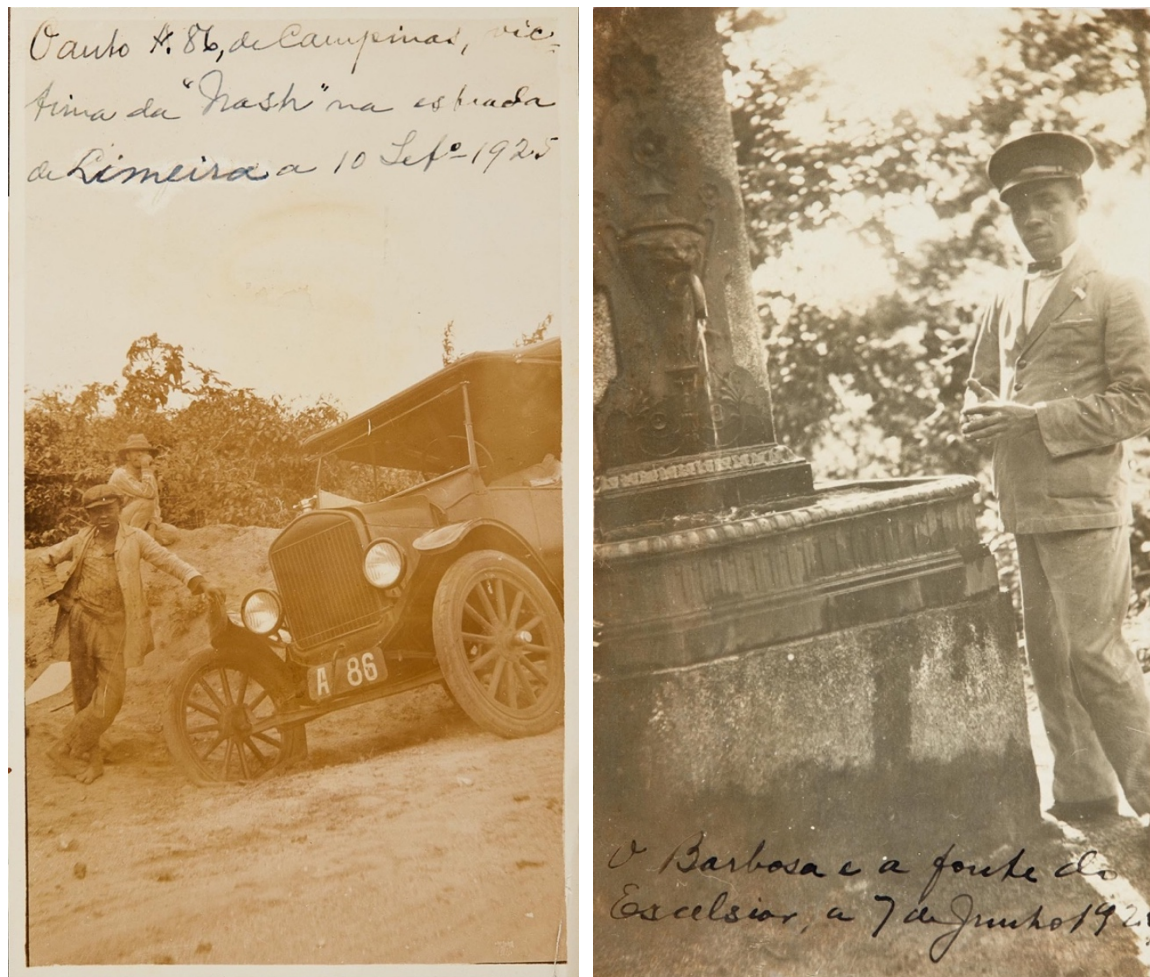 O auto A. 86, de Campinas, vic-
tima da "Nash" na estrada
de Limeira a 10 Setº-1925
A 86
O Barbosa e a fonte do
Excelsior, a 7 de Junho